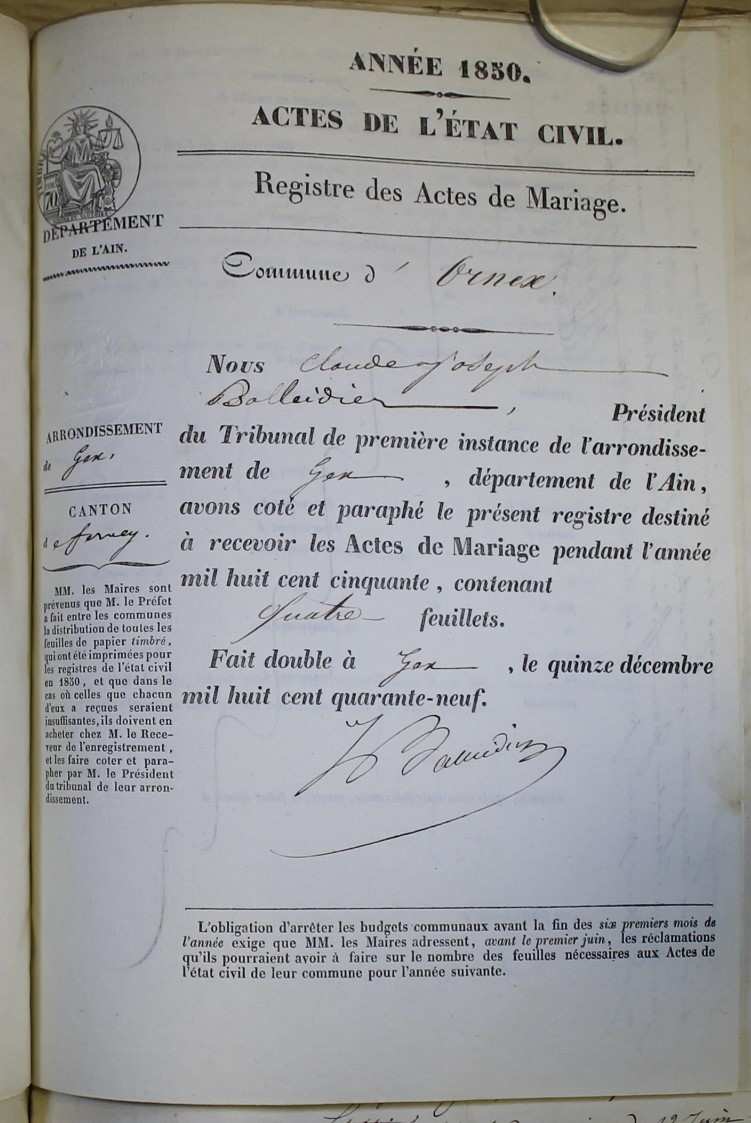 ANNÉE 1850.
ACTES DE L'ÉTAT CIVIL.
Registre des Actes de Mariage.
Commune d' Ornex.
DÉPARTEMENT
DE L'AIN.
ARRONDISSEMENT
de Gex,
CANTON
de ferney.
MM. les Maires sont
prévenus que M. le Préfet
a fait entre les communes
la distribution de toutes les
feuilles de papier timbré,
qui ont été imprimées pour
les registres de l'état civil
en 1850, et que dans le
cas où celles que chacun
d'eux a reçues seraient
insuffisantes, ils doivent en
acheter chez M. le Rece-
veur de l'enregistrement,
et les faire coter et para-
pher par M. le Président
du tribunal de leur arron-
dissement.
Nous Claude joseph
Balleidier, Président
du Tribunal de première instance de l'arrondisse-
ment de Gex, département de l'Ain,
avons coté et paraphé le présent registre destiné
à recevoir les Actes de Mariage pendant l'année
mil huit cent cinquante, contenant
quatre feuillets.
Fait double à Gex, le quinze décembre
mil huit cent quarante-neuf.
Balleidier
L'obligation d'arrêter les budgets communaux avant la fin des six premiers mois de
l'année exige que MM. les Maires adressent, avant le premier juin, les réclamations
qu'ils pourraient avoir à faire sur le nombre des feuilles nécessaires aux Actes de
l'état civil de leur commune pour l'année suivante.
12 Juin